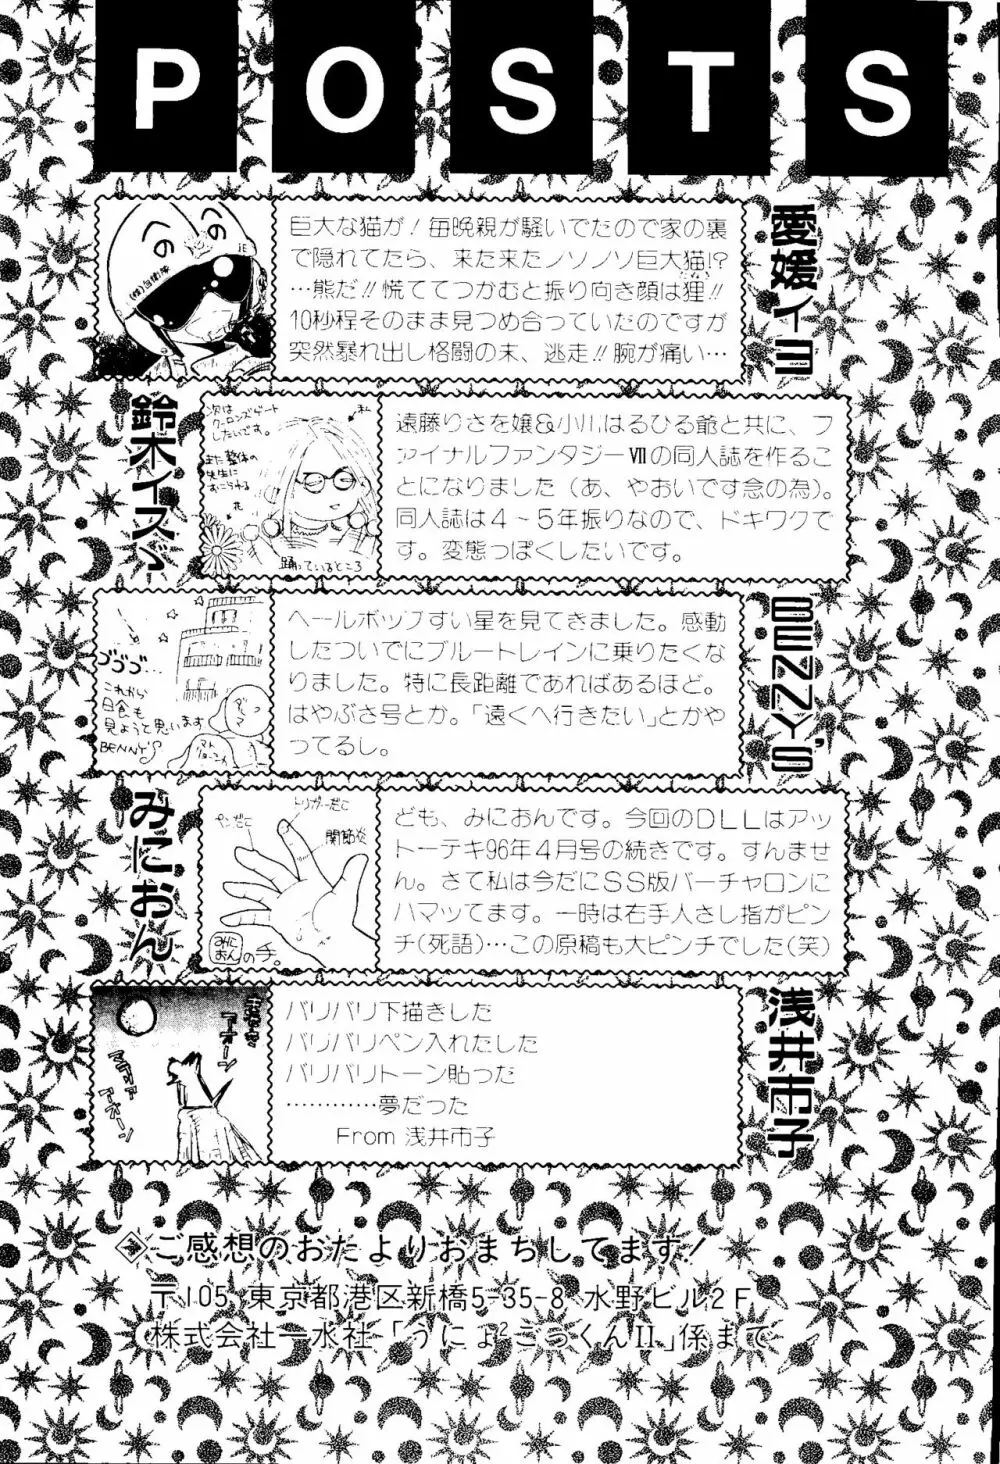 POSTS
愛媛イヨ
巨大な猫が！毎晩親が騒いでたので家の裏
で隠れてたら、来た来たノソノソ巨大猫!?
…熊だ!!慌ててつかむと振り向き顔は狸!!
10秒程そのまま見つめ合っていたのですが
突然暴れ出し格闘の末、逃走!!腕が痛い…
鈴木イスヾ
次は
クーロンズゲート
したいです。
また整体の
先生に
おこられる
私
踊っているところ
遠藤りさを嬢&小川はるひる爺と共に、フ
ァイナルファンタジーⅦの同人誌を作るこ
とになりました（あ、やおいです念の為）。
同人誌は４～５年振りなので、ドキワクで
す。変態っぽくしたいです。
BENNY'S
ゴゴゴ…
これから
日食も
見ようと思います
BENNY'S
ヘールボップすい星を見てきました。感動
したついでにブルートレインに乗りたくな
りました。特に長距離であればあるほど。
はやぶさ号とか。「遠くへ行きたい」とかや
ってるし。
みにおん
トリガーだこ
ペンだこ
関節炎
みに
おん の手。
ども、みにおんです。今回のＤＬＬはアッ
トーテキ96年４月号の続きです。すんませ
ん。さて私は今だにＳＳ版バーチャロンに
ハマッてます。一時は右手人さし指がピン
チ(死語)…この原稿も大ピンチでした(笑)
浅井市子
バリバリ下描きした
バリバリペン入れたした
バリバリトーン貼った
…………夢だった
From 浅井市子
ご感想のおたよりおまちしてます！
〒105 東京都港区新橋5-35-8 水野ビル2F
株式会社一水社「うにょ²ごっくんII」係まで